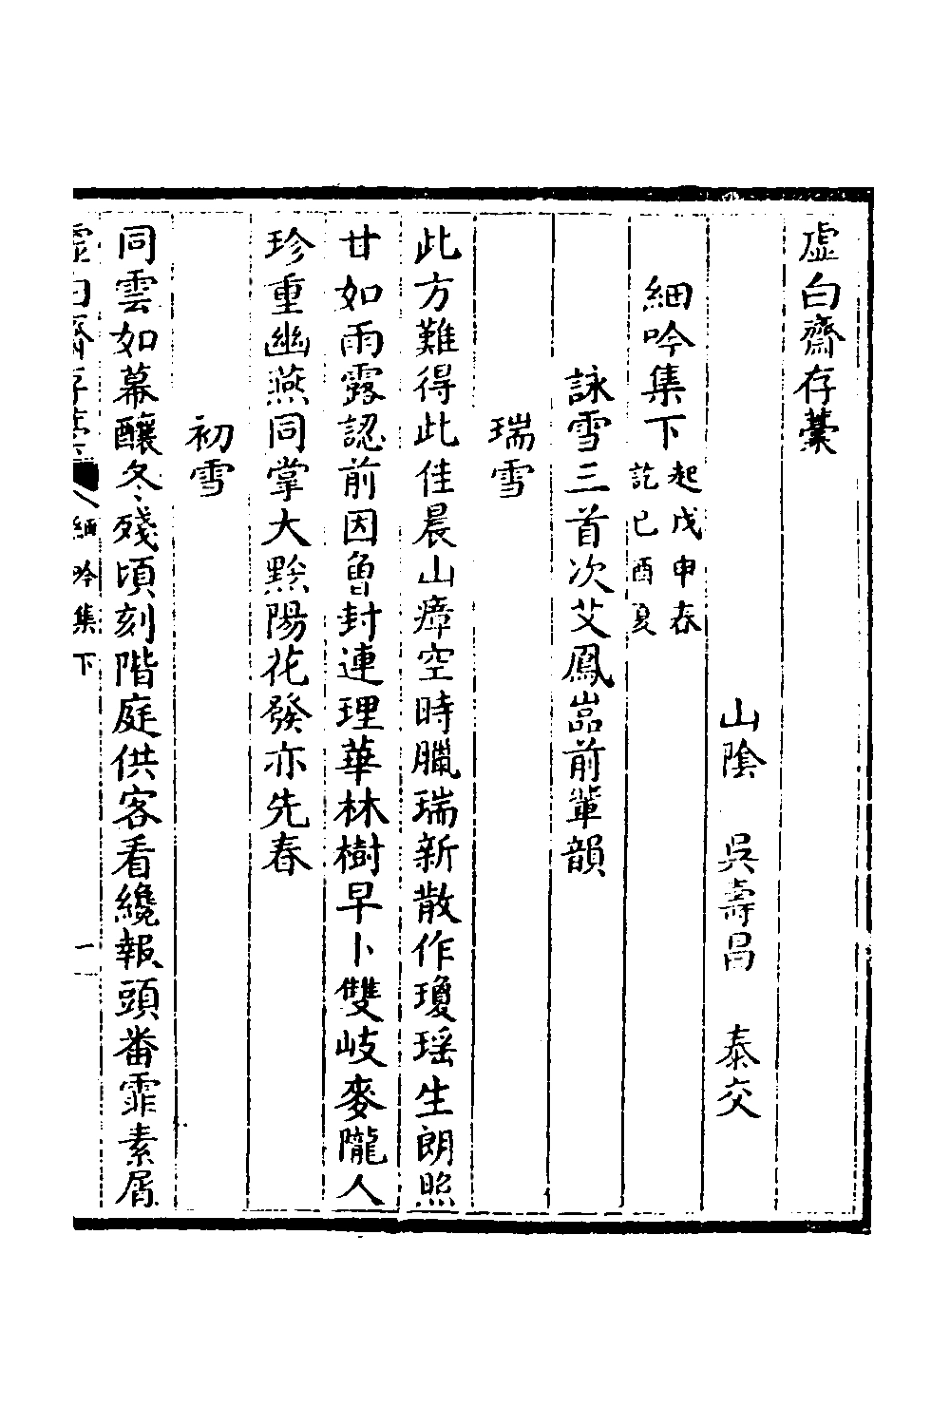 虛白齋存藁
山陰 吳壽昌 泰交
細吟集下 起戊申春 訖己酉夏
詠雪三首次艾鳳嵓前輩韻
瑞雪
此方難得此佳晨山瘴空時臘瑞新散作瓊瑤生朗照
甘如雨露認前因魯封連理華林樹早卜雙岐麥隴人
珍重幽燕同掌大黔陽花發亦先春
初雪
同雲如幕釀冬殘頃刻階庭供客看纔報頭番霏素屑
虛白齋存藁 細吟集下 一